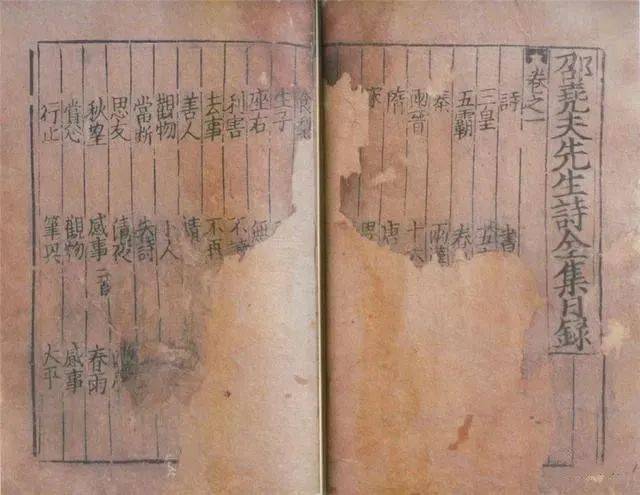 邵尭夫先生詩全集目録
卷之一
詩 書
三皇 五
五霸 春
秦 兩漢
兩晉 十六
隋 唐
家 思
生子
座右 無
利害 不
去事 不再
善人 請
觀物 小人
當斷 失詩
思友 清夜
秋望 感事二首 春雨
賞花 觀物 感事
行止 筆興 大平